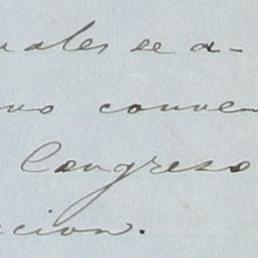 uales se a-
vo conve
Congreso
cion.